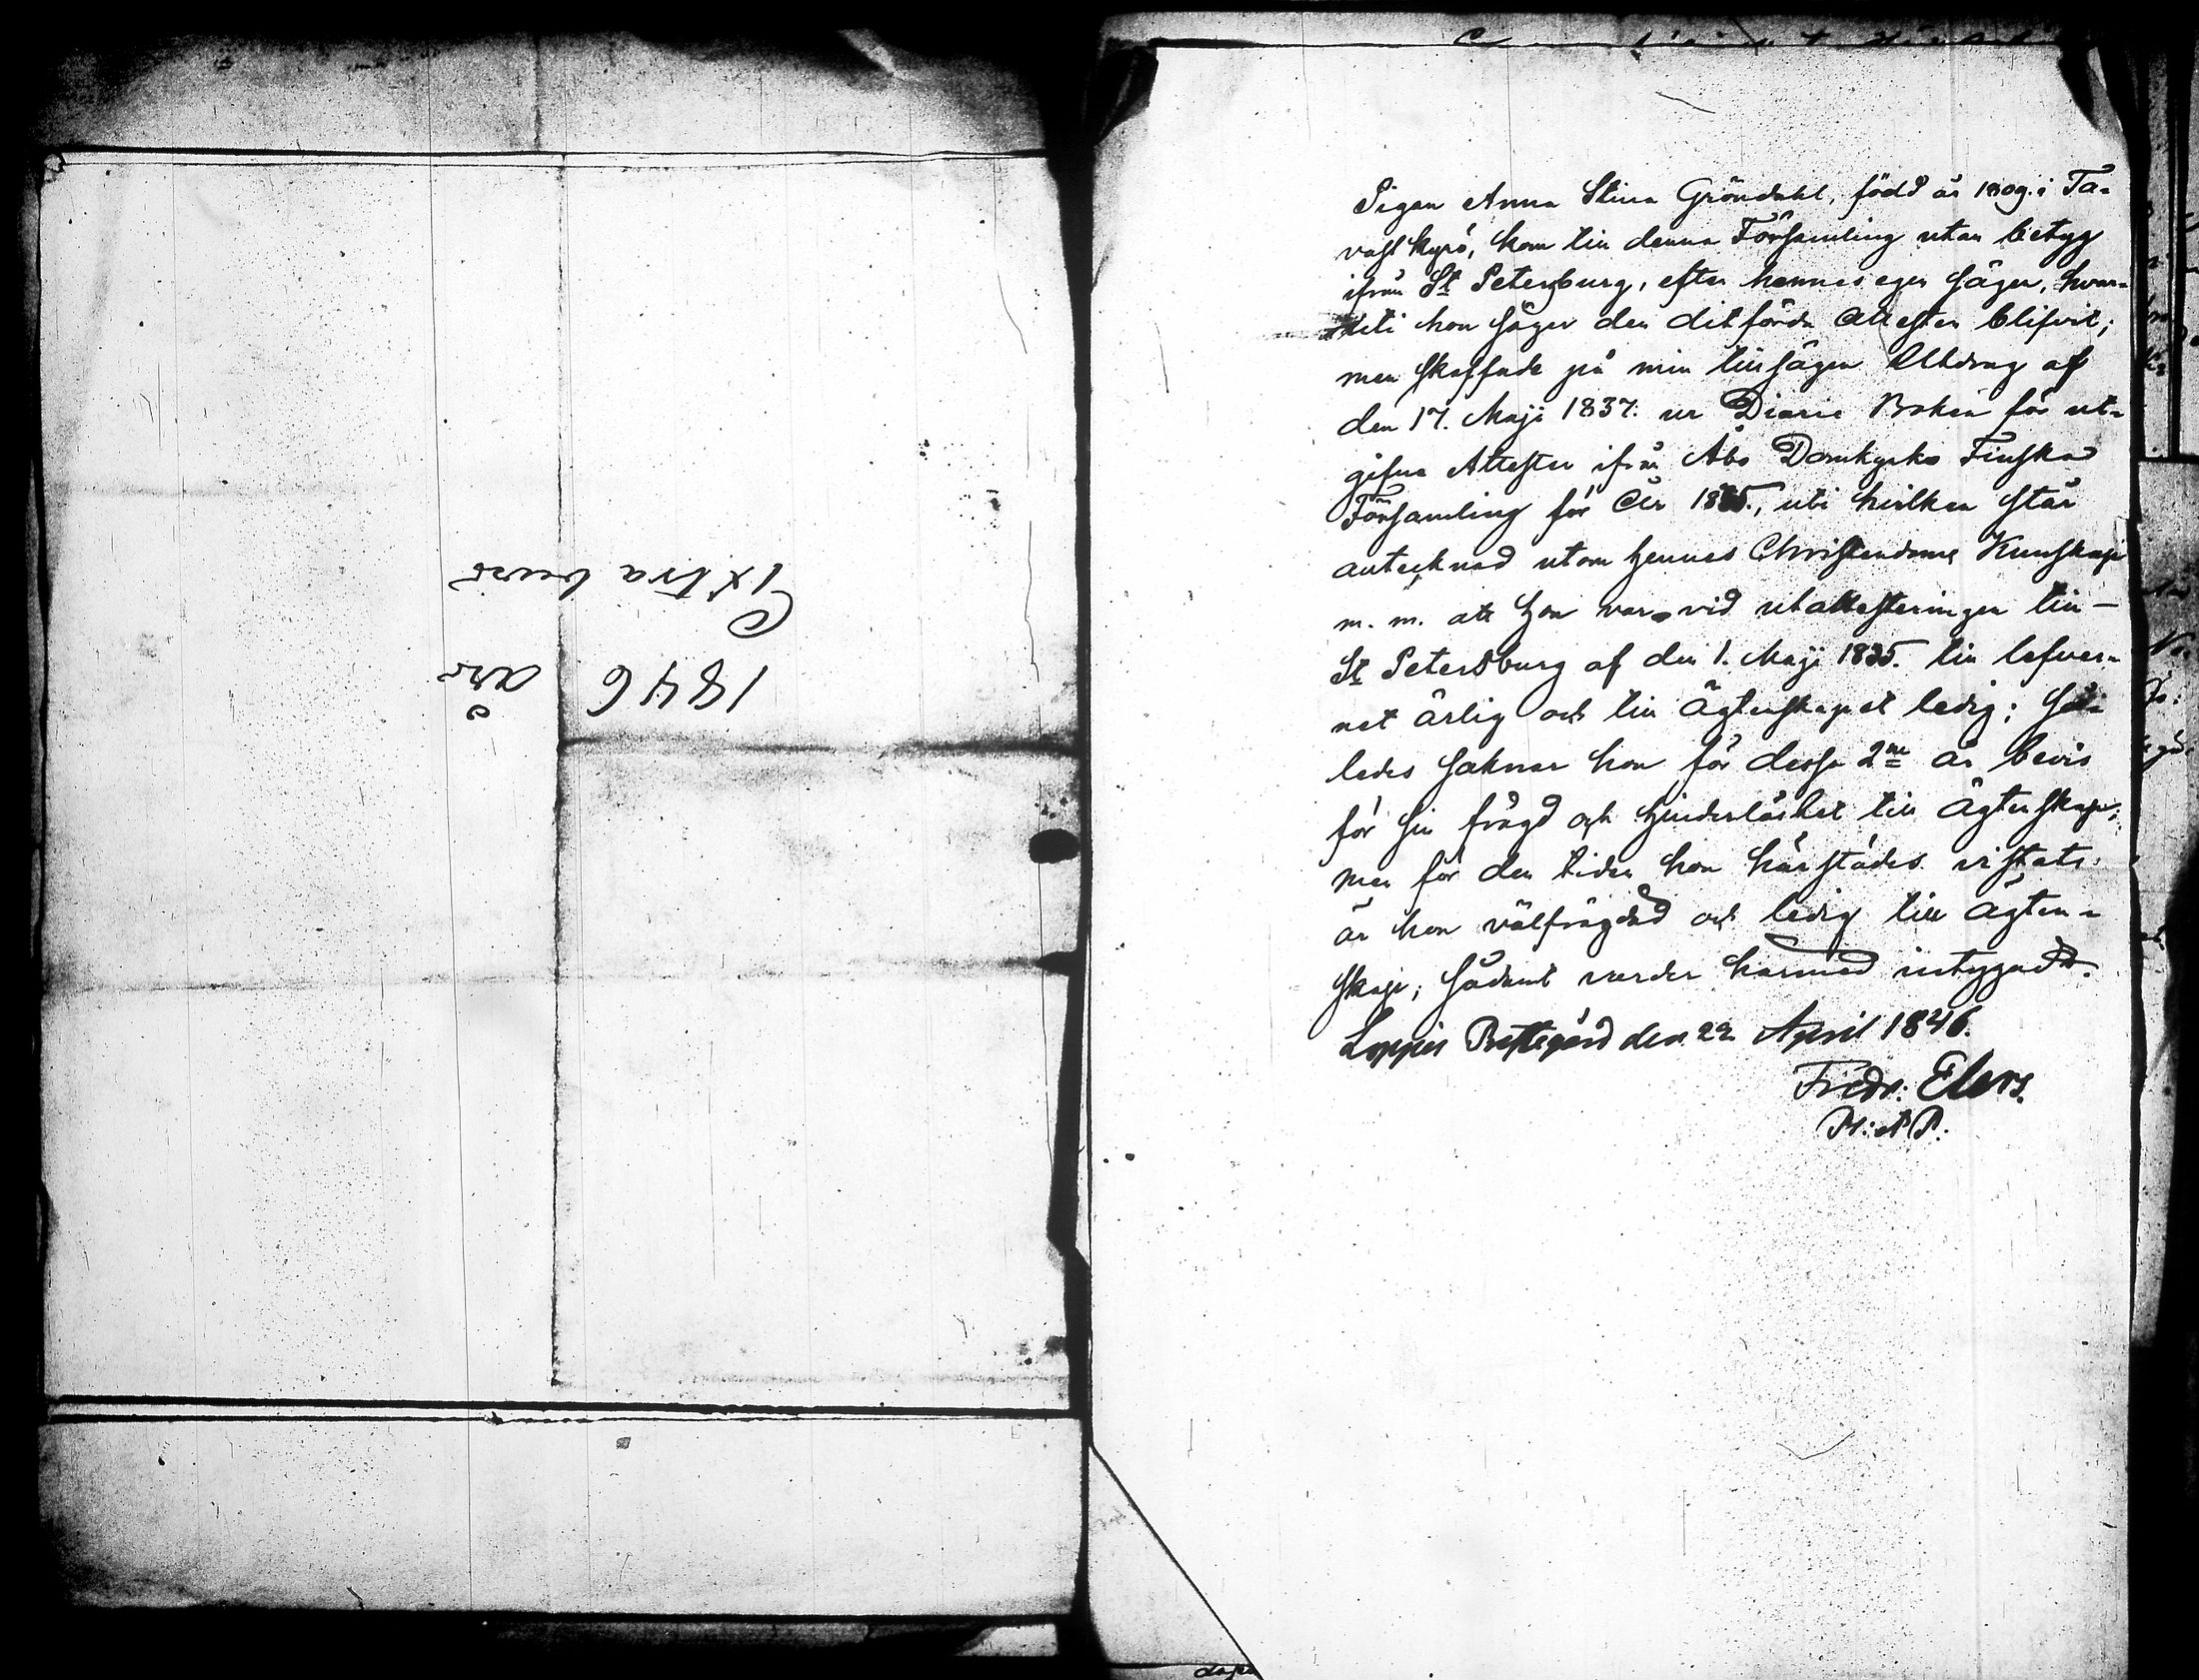 1846
års
Extra bevis
Pigan Anna Stina Gröndahl, född år 1809. i Ta-
vastkyrö, kom till denna Församling utan betyg
ifrån St Petersburg, efter hennes egen sägen, hvar-
uti hon säger den ditförda attesten blifvit;
men skaffade på min tillsägen Utdrag af
den 17. Maji 1837. ur Diarie Boken för ut-
gifna Attester ifrån Åbo Domkyrko Finska
Församling för år 1835., uti hvilken står
antecknad utom hennes Christendoms Kunskap
m. m. att hon var vid utattesteringen till
St Petersburg af den 1. Maji 1835. till lefver-
net ärlig och till Ägtenskapet ledig; så-
ledes saknar hon för dessa 2ne år bevis
för sin frägd och hinderlöshet till Ägtenskap;
men för den tiden hon härstädes vistats
är hon välfrägdad och ledig till ägten-
skap; sådant varder härmed intygadt.
Loppis Prestegård den 22 April 1846.
Fredr: Elers.